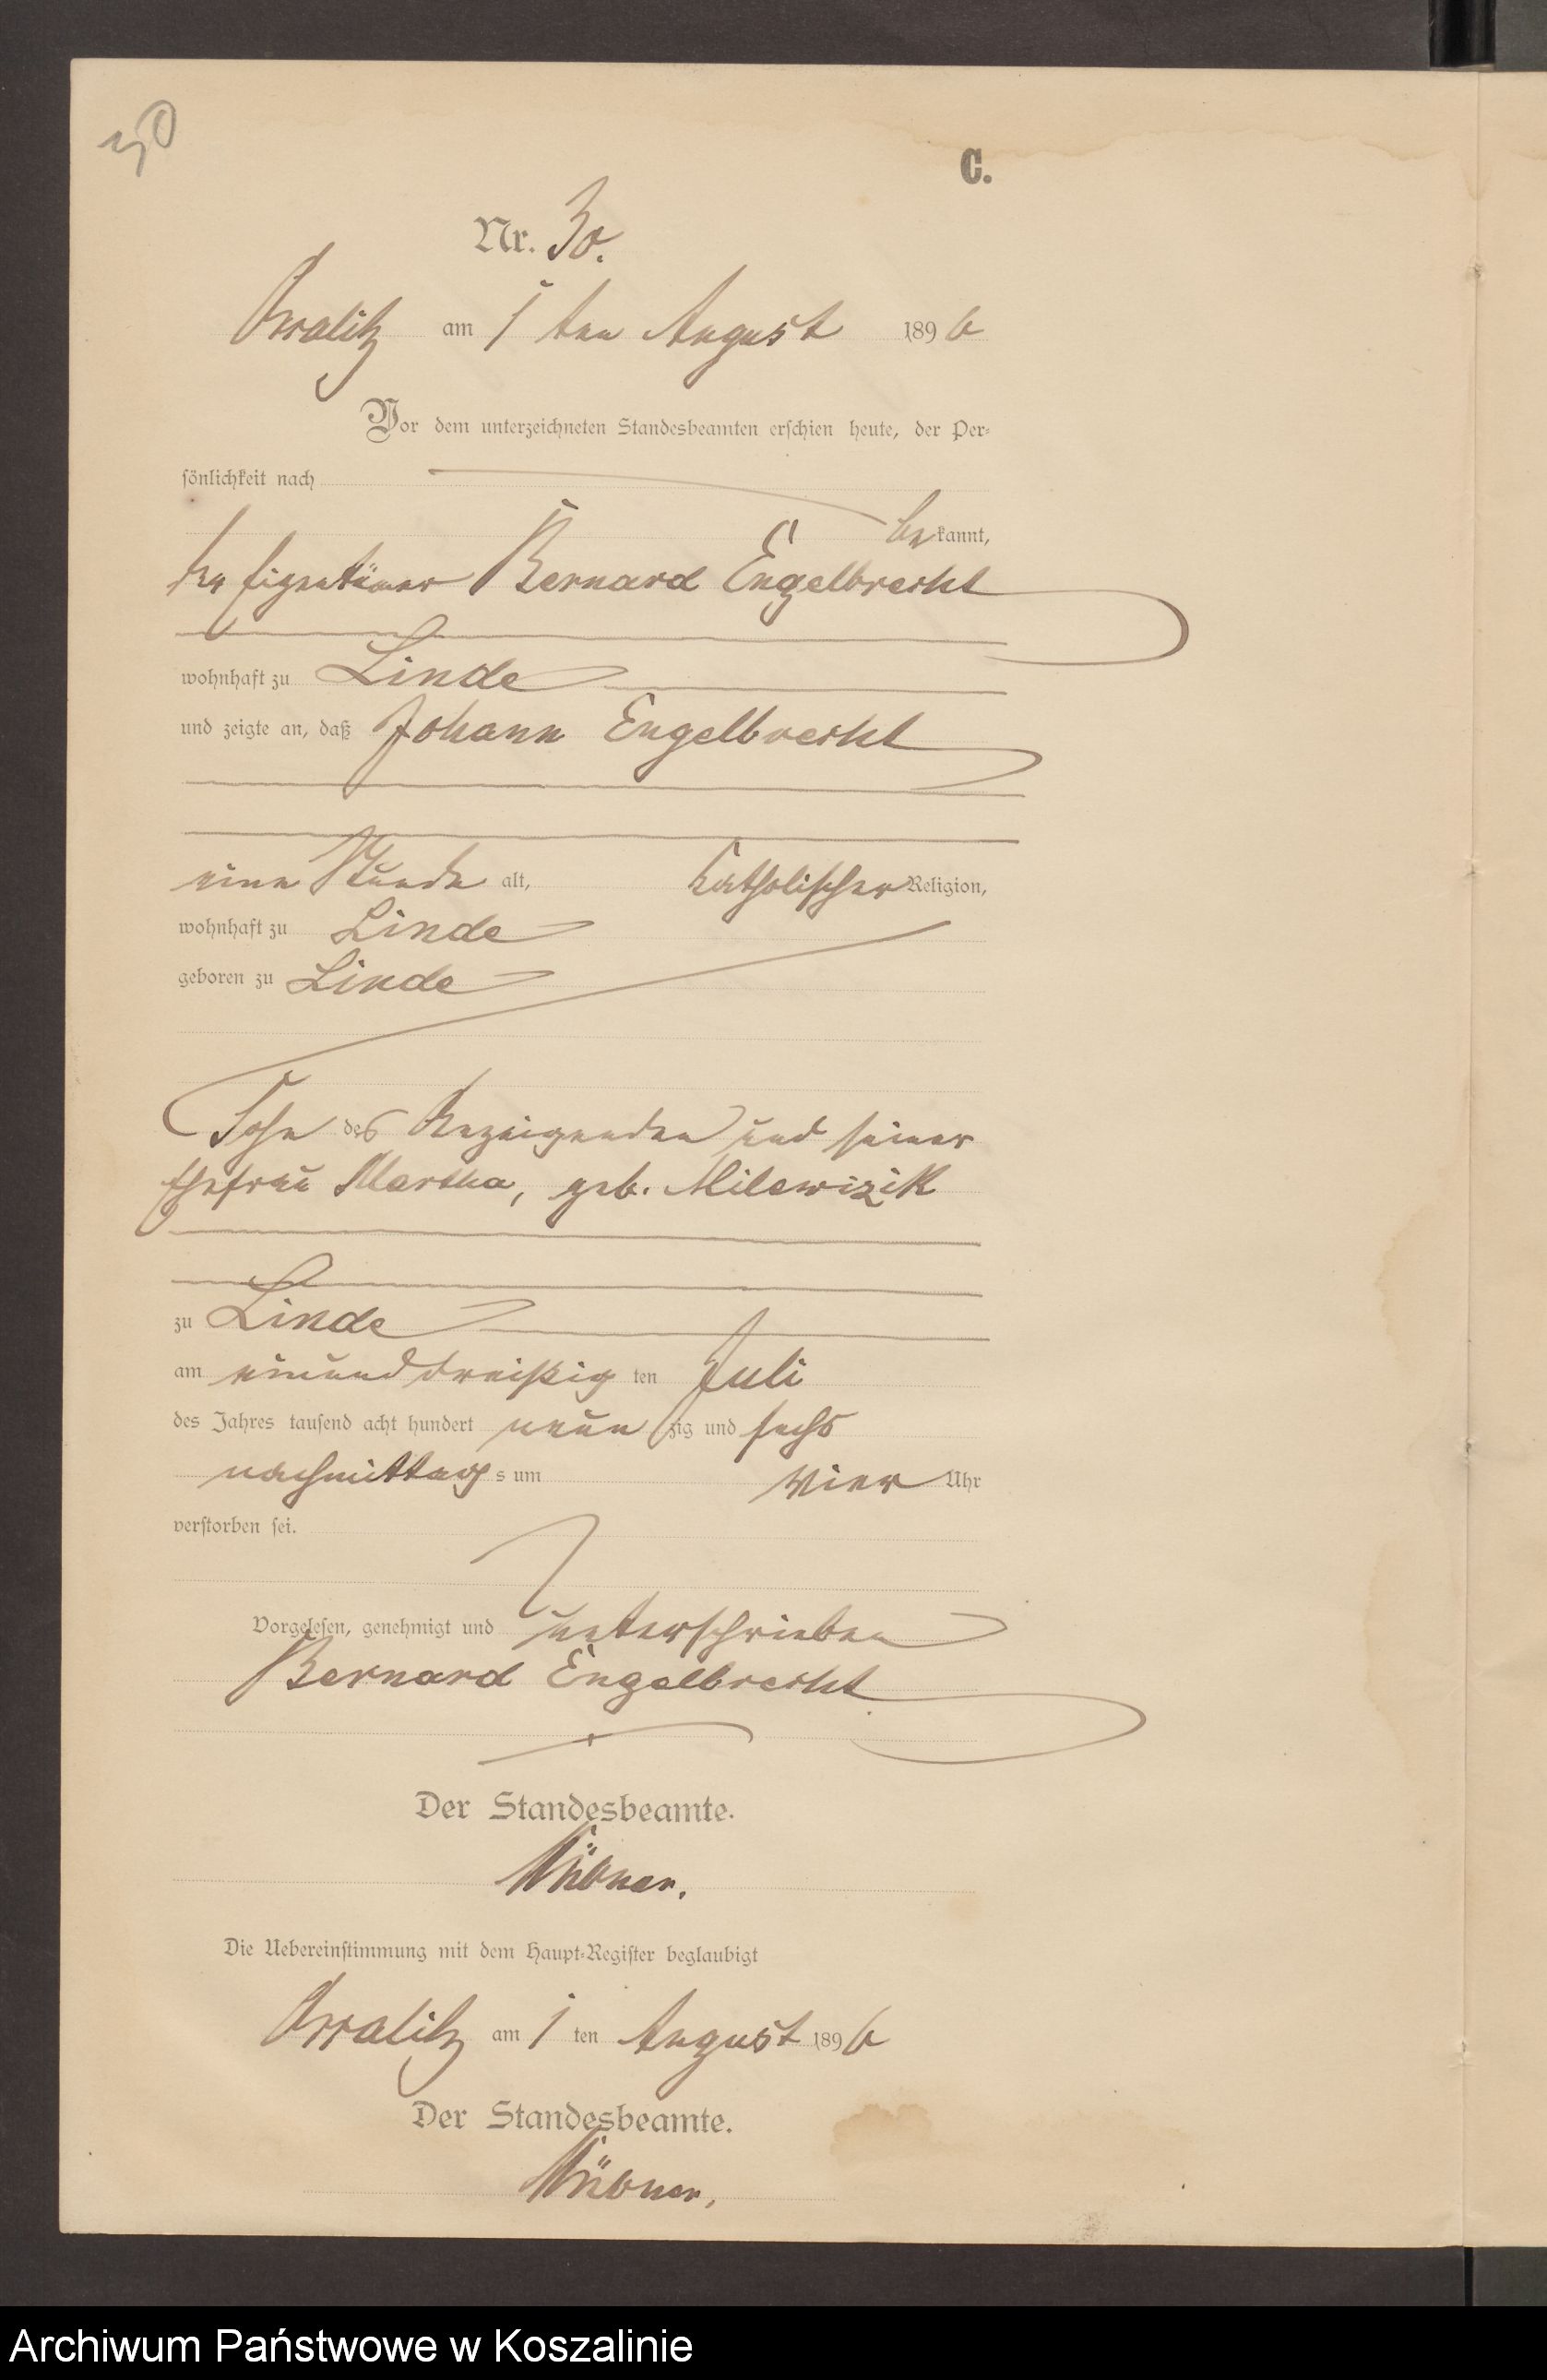 30
C.
Nr. 30.
am 1 ten August 1896
Vor dem unterzeichneten Standesbeamten erschien heute, der Per-
sönlichkeit nach
bekannt,
der Eigentümer Bernard Engelbrecht
wohnhaft zu Linde
und zeigte an, daß Johann Engelbrecht
eine Stunde alt, katholischer Religion,
wohnhaft zu Linde
geboren zu Linde
Sohn des Anzeigenden und seiner
Ehefrau Martha, geb. Milewizik
zu Linde
am einunddreißig ten Juli
des Jahres tausend acht hundert neunzig und sechs
nachmittags um vier Uhr
verstorben sei.
Vorgelesen, genehmigt und unterschrieben
Bernard Engelbrecht
Der Standesbeamte.
Die Uebereinstimmung mit dem Haupt-Register beglaubigt
am 1 ten August 1896
Der Standesbeamte.
Archiwum Państwowe w Koszalinie